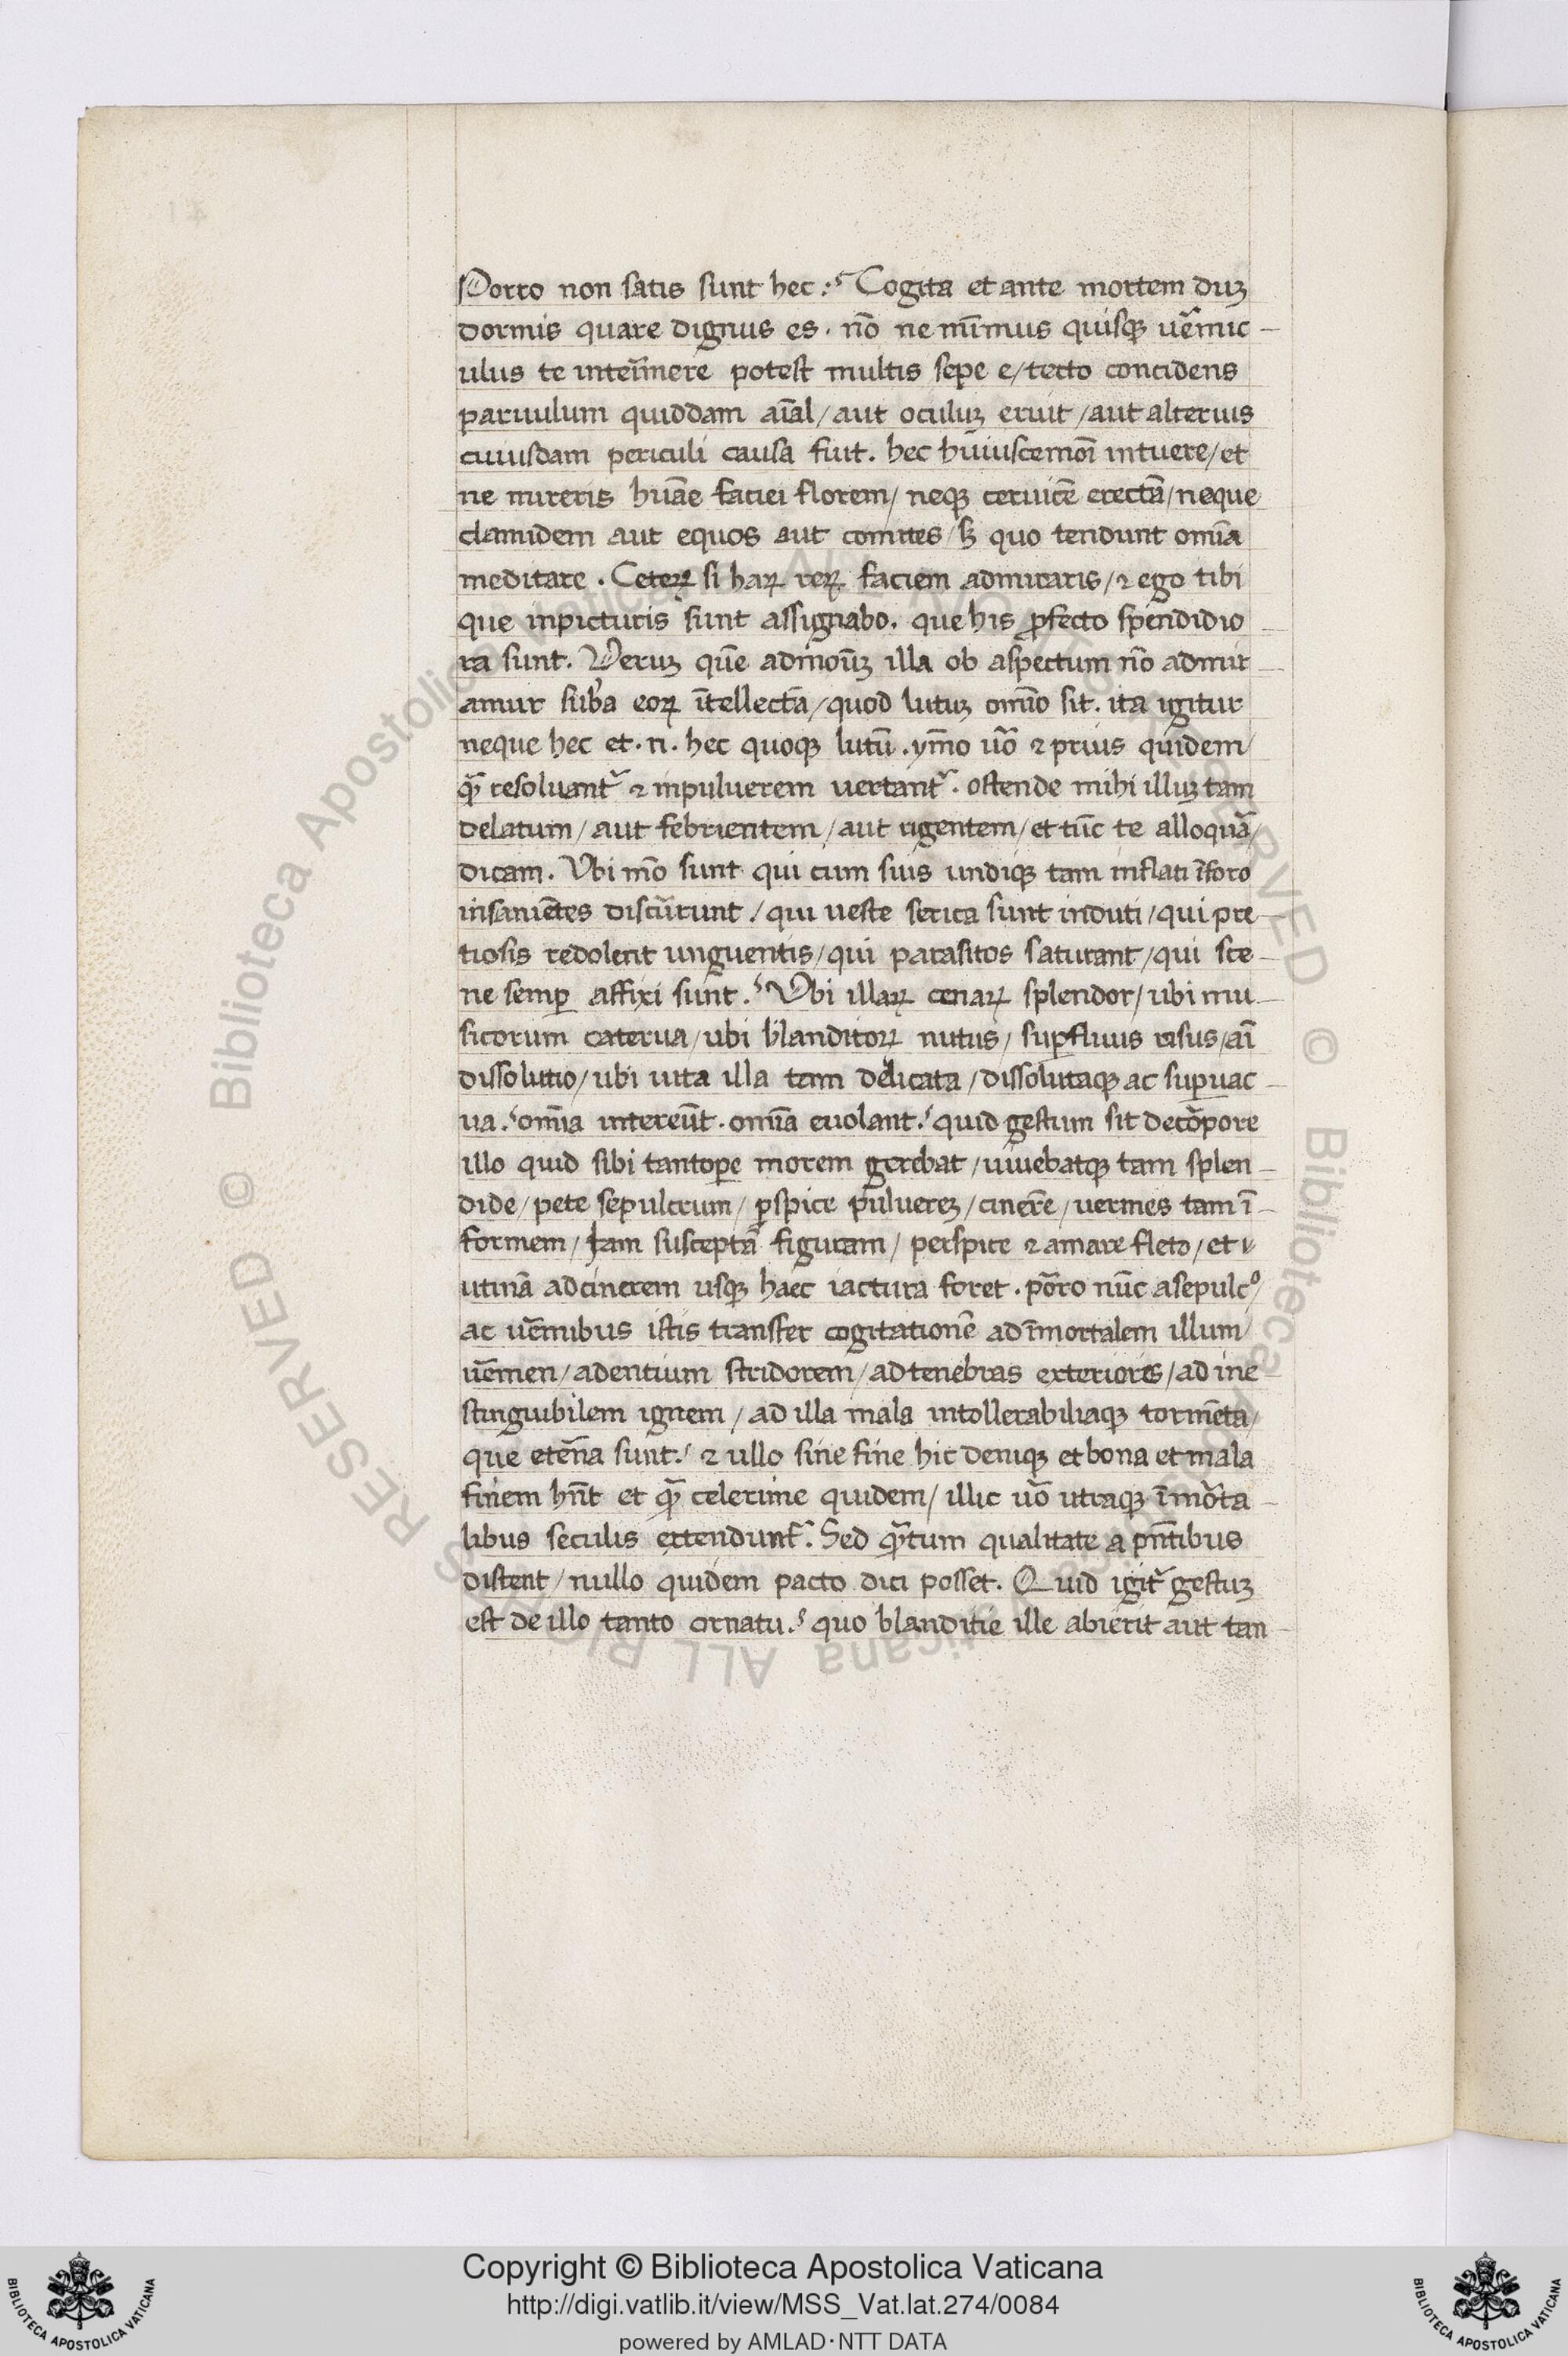 Porro non satis sunt hec :ʹ Cogita et ante mortem duꝫ
dormis quare dignus es . nō ne mīmus quisqꝫ ūemic
ulus te inteīmere potest multis sepe e / tecto concidens
paruulum quiddam aīal / aut oculuꝫ eruit / aut alterius
cuiusdam periculi causa fuit . hec huiuscemōi intuere / et
ne mireris huāe faciei florem / neqꝫ ceruicē erectā / neque
clamidem aut equos aut comites / sꝫ quo tendunt omīa
meditare . Ceteꝝ si haꝝ reꝝ faciem admiraris / ⁊ ego tibi
que inpicturis sunt assignabo . que his ꝓfecto spendidio
ra sunt . Veruꝫ quē admoūꝫ illa ob aspectum nō admir
amur sub̓a eoꝝ ītellectā / quod lutuꝫ omīo sit . ita igitur
neque hec et . n . hec quoqꝫ lutū . ymō uō ⁊ prius quidem /
qꝫ̄ resoluant̄ ⁊ inpuluerem uertant̄ . ostende mihi illuꝫ tam
delatum / aut febrientem / aut rigentem / et tūc te alloquā /
dicam . Vbi mō sunt qui cum suis undiqꝫ tam inflati īforo
insaniētes discūrunt / qui ueste serica sunt induti / qui pre
tiosis redolent unguentis / qui parasitos saturant / qui sce
ne semꝑ affixi sunt .ʹ Vbi illaꝝ cenaꝝ splendor / ubi mu
sicorum caterua / ubi blanditoꝝ nutus / suꝑfluus risus / aī
dissolutio / ubi uita illa tam delicata / dissolutaqꝫ ac suꝑuac
ua .ʹ omīa intereūt . omīa euolant .ʹ quid gestum sit decōpore
illo quid sibi tantoꝑe morem gerebat / uiuebatqꝫ tam splen
dide / pete sepulcrum / ꝑspice puluereꝫ / cinerē / uermes tam ī
formem / tam susceptā figuram / perspice ⁊ amare fleto / et
utinā adcinerem usqꝫ haec iactura foret . pōro nūc asepulcº /
ac uēmibus istis transfer cogitationē ad īmortalem illum /
uēmen / adentium stridorem / adtenebras exteriores / ad ine
stinguibilem ignem / ad illa mala intollerabiliaqꝫ tormēta /
que etēna sunt .ʹ ⁊ ullo sine fine hic deniqꝫ et bona et mala
finem hn̄t et qꝫ̄ celerime quidem / illic uō utraqꝫ īmōta
libus seculis extendunt̄ . Sed qꝫ̄tum qualitate a pn̄tibus
distent / nullo quidem pacto dici posset . Quid igit̄ gestuꝫ
est de illo tanto ornatu .ʹ quo blanditie ille abierit aut tan
Copyright © Biblioteca Apostolica Vaticana
http://digi.vatlib.it/view/MSS_Vat.lat.274/0084
powered by AMLAD·NTT DATA